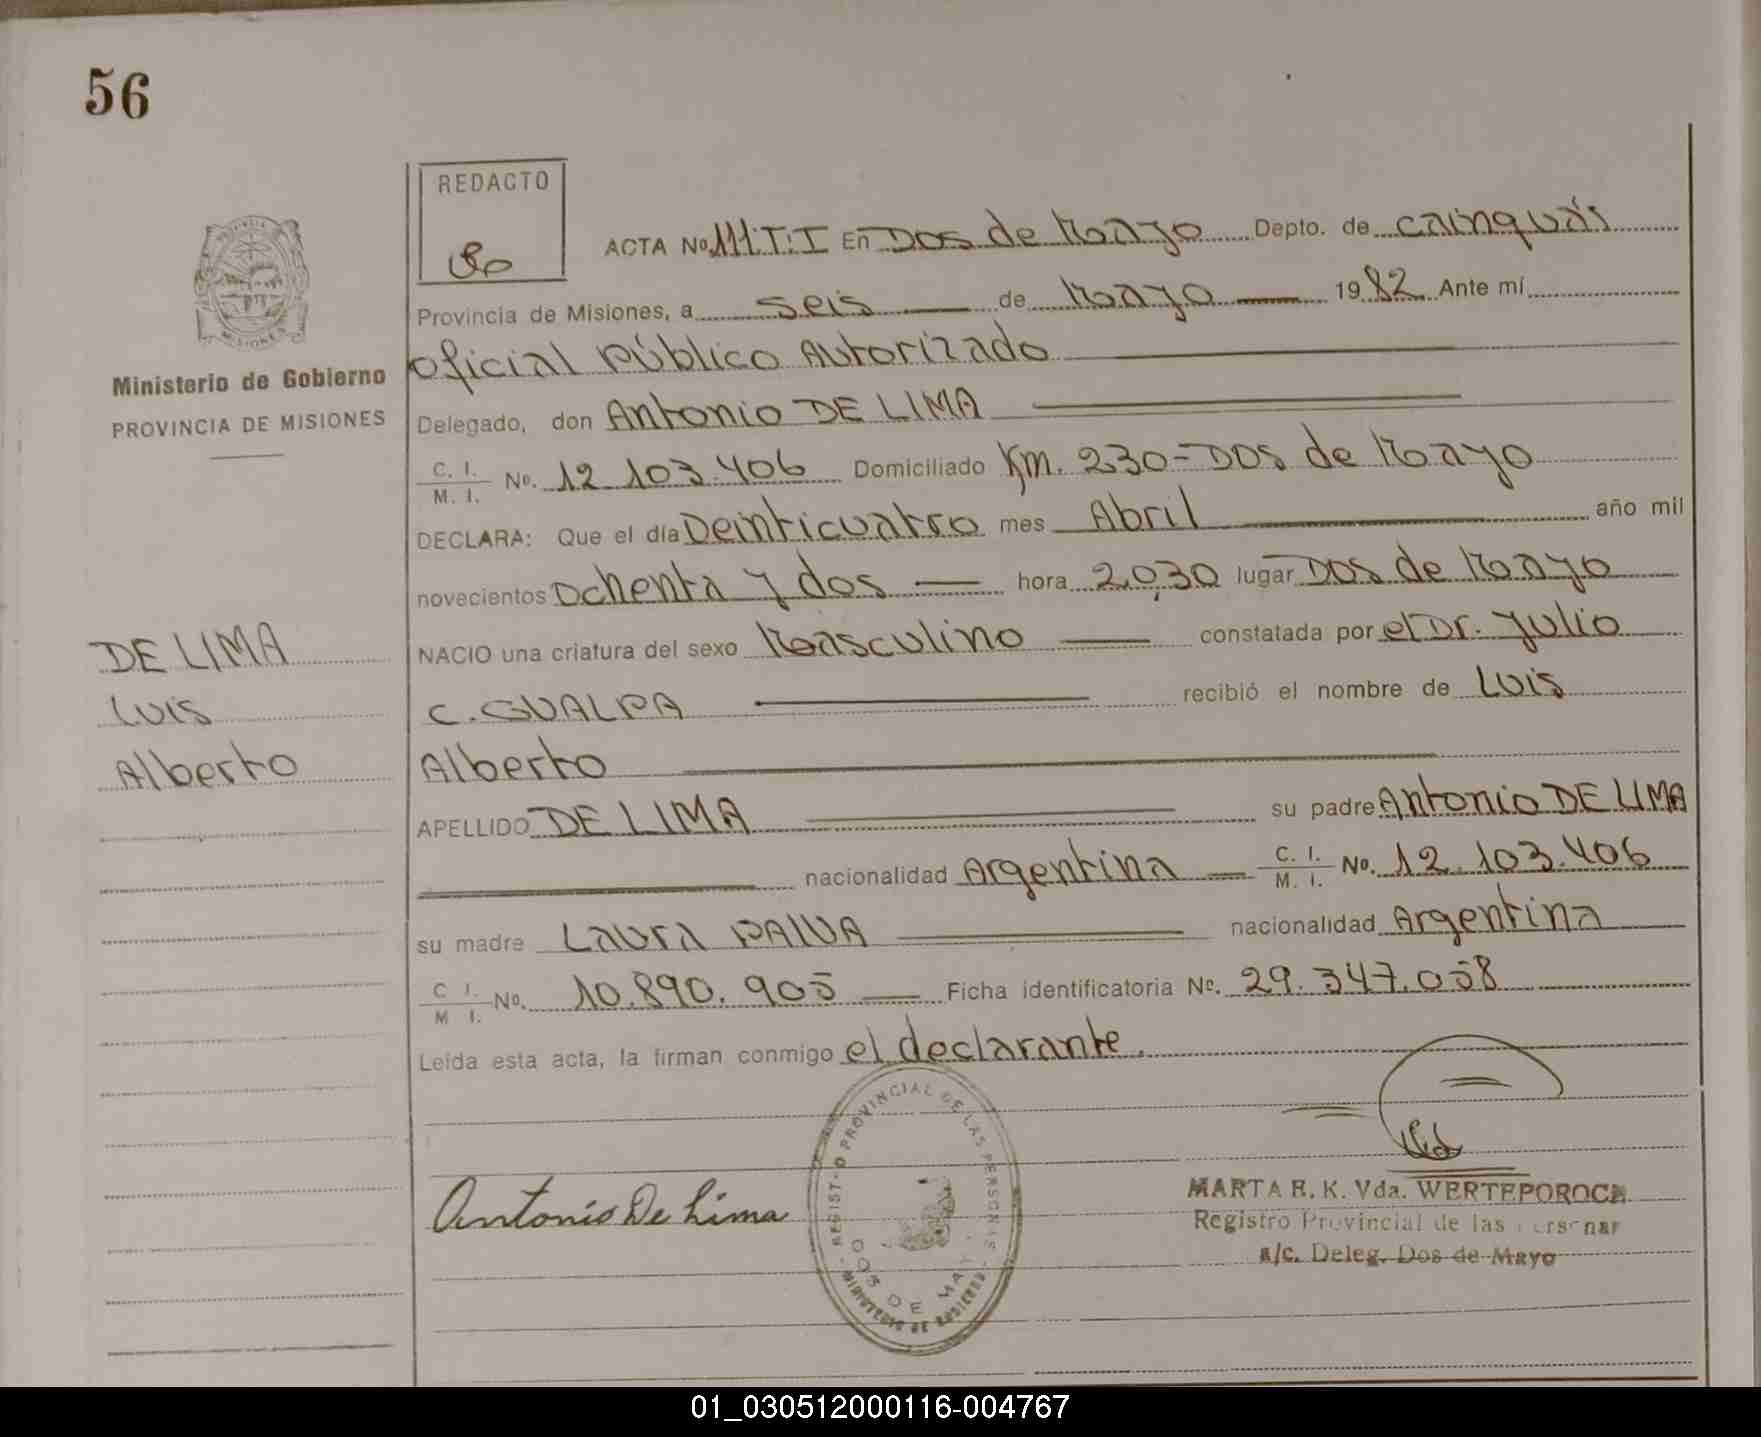 56
REDACTO
PROVINCIA
MISIONES
ACTA No 111.T:I En Dos de Mayo Depto. de cainguás
Provincia de Misiones, a seis de Mayo 1982 Ante mí
oficial Público Autorizado
Ministerio de Gobierno
PROVINCIA DE MISIONES
Delegado, don Antonio DE LIMA
C. I. / M. I. No. 12.103.406 Domiciliado Km. 230-Dos de Mayo
DECLARA: Que el día Veinticuatro mes Abril año mil
novecientos Ochenta y dos hora 20,30 lugar Dos de Mayo
NACIO una criatura del sexo Masculino constatada por el Dr. Julio
C. GUALPA recibió el nombre de Luis
Alberto
DE LIMA
Luis
Alberto
APELLIDO DE LIMA su padre Antonio DE LIMA
nacionalidad Argentina C. I. / M. I. No. 12.103.406
su madre Laura PAIVA nacionalidad Argentina
C I. / M I. No. 10.890.905 Ficha identificatoria No. 29.347.058
Leída esta acta, la firman conmigo el declarante.
REGISTRO PROVINCIAL DE LAS PERSONAS
DOS DE MAYO
MINISTERIO DE GOBIERNO
Antonio De Lima
MARTA R. K. Vda. WERTEPOROCH
Registro Provincial de las
a/c. Deleg. Dos de Mayo
01_030512000116-004767